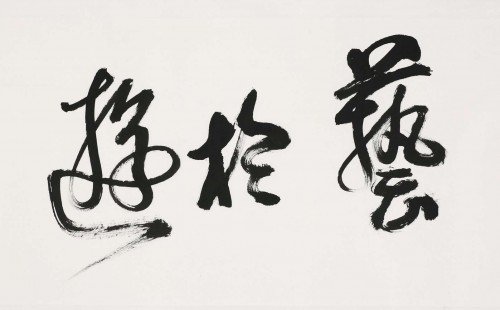 遊於藝